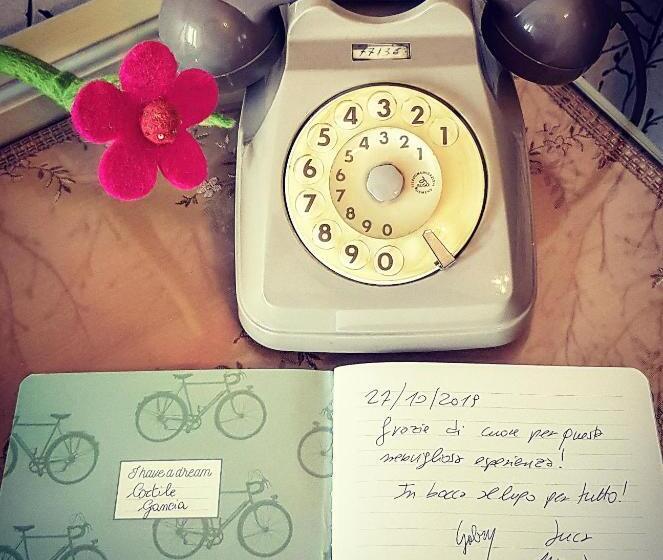 77136
1
2
3
4
5
6
7
8
9
0
1
2
3
4
5
6
7
8
9
0
I have a dream
Cortile
Gancia
27/10/2019
Grazie di cuore per questa
meravigliosa esperienza!
In bocca al lupo per tutto!
Gabry Luca